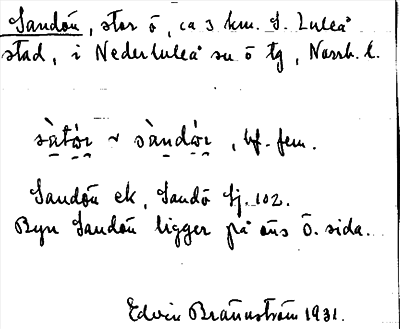 Sandön, stor ö, ca 3 km. S. Luleå
stad, i Nederluleå sn ö tg, Norrb. l.
sàtǫr ~ sàndǫr, bf. fem.
Sandön ek, Sandö Gj. 102.
Byn Sandön ligger på öns Ö. sida.
Edvin Brännström 1931.